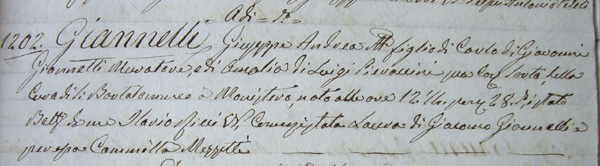 Adi = dº
1202. Giannelli Giuseppe Andrea Mª figlio di Carlo di Giovanni
Giannetti Muratore, e di Amalia di Luigi Pieraccini sua Consorte, della
Cura di S. Bartolommeo a Monistero, nato alle ore 12 ½ 28. è stato
Battº da me Ilario Comre Assistata Laura di Giacomo Giannelli e
per essa Cammilla Mazzetti